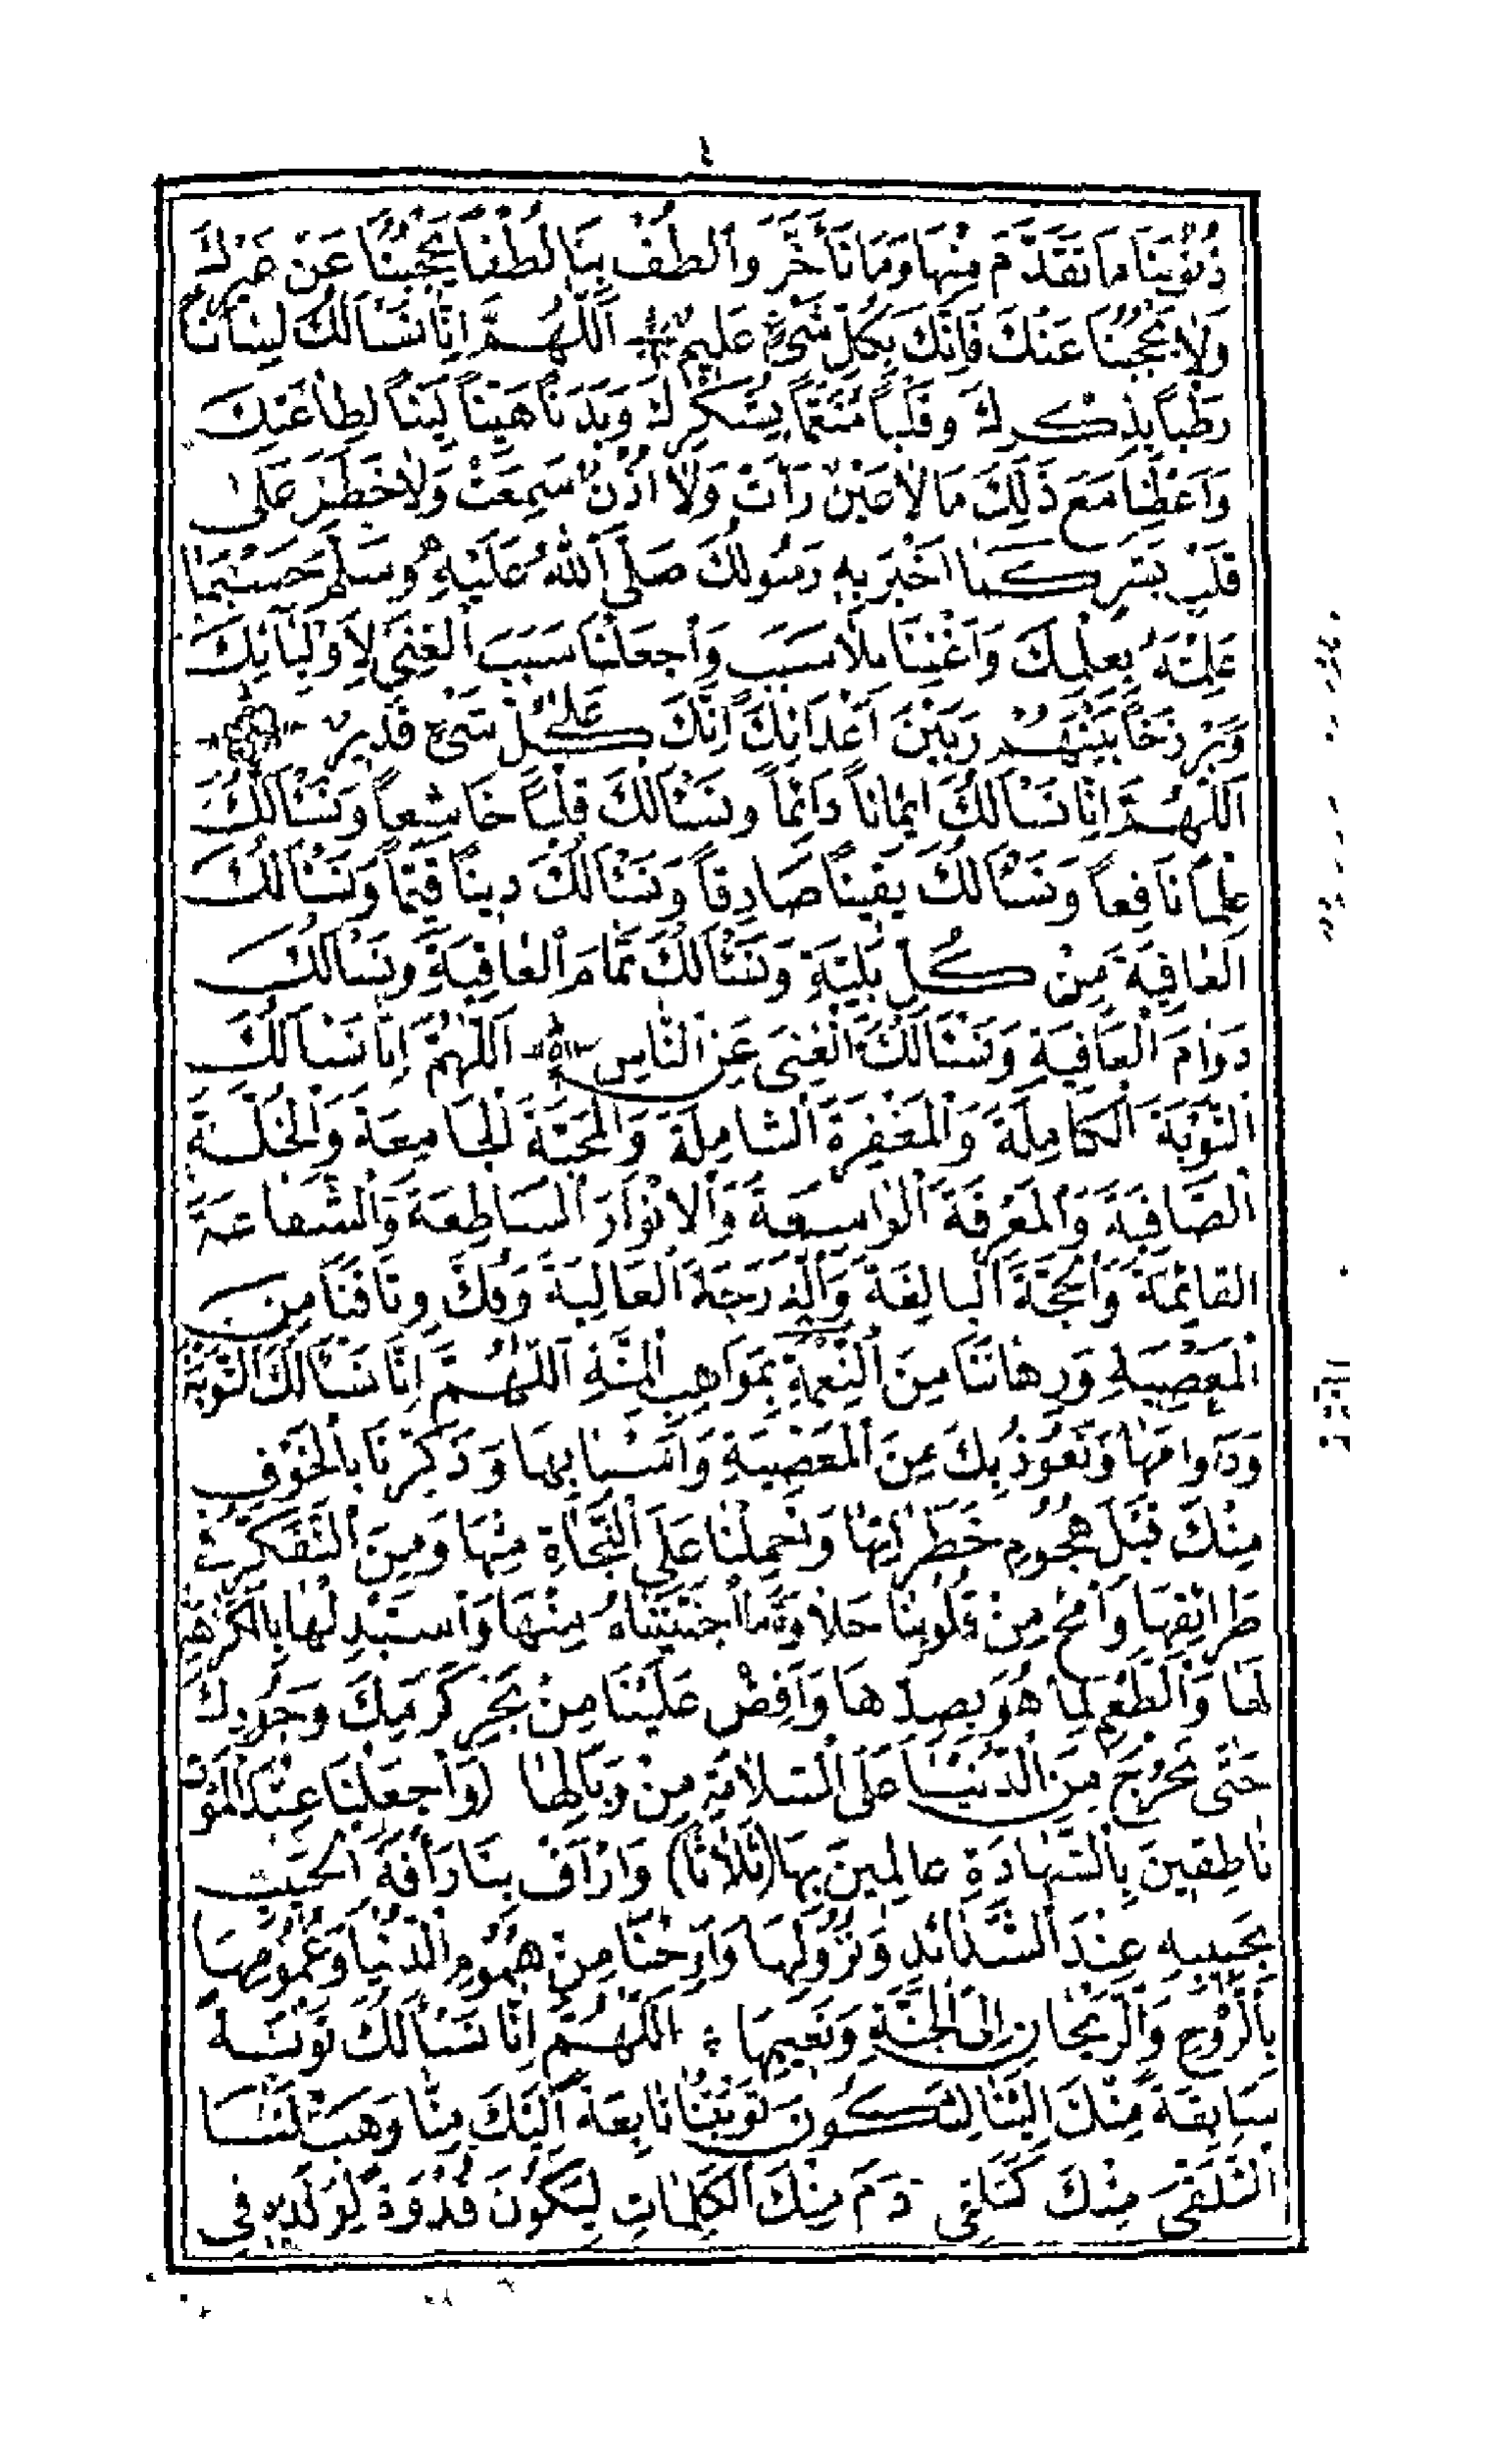 ٤
ذُنُوبَنَا مَا تَقَدَّمَ مِنْهَا وَمَا تَأَخَّرَ وَالْطُفْ بِنَا لُطْفاً يَحْجُبُنَا عَنْ غَيْرِكَ
وَلَا يَحْجُبُنَا عَنْكَ فَإِنَّكَ بِكُلِّ شَيْءٍ عَلِيمٌ اَللّٰهُمَّ اِنَّا نَسْأَلُكَ لِسَاناً
رَطْباً بِذِكْرِكَ وَقَلْباً مُنَعَّماً بِشُكْرِكَ وَبَدَناً هَيِّناً لَيِّناً لِطَاعَتِكَ
وَاَعْطِنَا مَعَ ذَلِكَ مَا لَا عَيْنٌ رَأَتْ وَلَا اُذُنٌ سَمِعَتْ وَلَا خَطَرَ عَلَى
قَلْبِ بَشَرٍ كَمَا اَخْبَرَ بِهِ رَسُولُكَ صَلَّى اَللّٰهُ عَلَيْهِ وَسَلَّمَ حَسْبَمَا
عَلِمْتَهُ بِعِلْمِكَ وَاَغْنِنَا بِلَا سَبَبٍ وَاَجْعَلْنَا سَبَبَ الْغِنَى لِاَوْلِيَائِكَ
وَبَرْزَخاً بَيْنَهُمْ وَبَيْنَ اَعْدَائِكَ اِنَّكَ عَلَى كُلِّ شَيْءٍ قَدِيرٌ
اَللّٰهُمَّ اِنَّا نَسْأَلُكَ اِيمَاناً دَائِماً وَنَسْأَلُكَ قَلْباً خَاشِعاً وَنَسْأَلُكَ
عِلْماً نَافِعاً وَنَسْأَلُكَ يَقِيناً صَادِقاً وَنَسْأَلُكَ دِيناً قَيِّماً وَنَسْأَلُكَ
اَلْعَافِيَةَ مِنْ كُلِّ بَلِيَّةٍ وَنَسْأَلُكَ تَمَامَ اَلْعَافِيَةِ وَنَسْأَلُكَ
دَوَامَ اَلْعَافِيَةِ وَنَسْأَلُكَ الْغِنَى عَنِ النَّاسِ اَللّٰهُمَّ اِنَّا نَسْأَلُكَ
اَلتَّوْبَةَ اَلْكَامِلَةَ وَالْمَغْفِرَةَ الشَّامِلَةَ وَالْمَحَبَّةَ الْجَامِعَةَ وَالْخُلَّةَ
اَلصَّافِيَةَ وَالْمَعْرِفَةَ الْوَاسِعَةَ وَالْاَنْوَارَ السَّاطِعَةَ وَالشَّفَاعَةَ
القَائِمَةَ وَالْحُجَّةَ الْبَالِغَةَ وَالدَّرَجَةَ الْعَالِيَةَ وَفُكَّ وِثَاقَنَا مِنَ
اَلْمَعْصِيَةِ وَرِهَانَنَا مِنَ النِّعْمَةِ بِمَوَاهِبِ الْمِنَّةِ اَللّٰهُمَّ اِنَّا نَسْأَلُكَ التَّوْبَةَ
وَدَوَامَهَا وَنَعُوذُ بِكَ مِنَ الْمَعْصِيَةِ وَاَسْبَابِهَا وَذَكِّرْنَا بِالْخَوْفِ
مِنْكَ قَبْلَ هُجُومِ خَطَرَاتِهَا وَنَحْمِلْنَا عَلَى النَّجَاةِ مِنْهَا وَمِنَ التَّفَكُّرِ فِي
طَرَائِقِهَا وَامْحُ مِنْ قُلُوبِنَا حَلَاوَةَ مَا اجْتَنَيْنَاهُ مِنْهَا وَاسْتَبْدِلْهَا بِالْكَرَاهَةِ
لَهَا وَالطَّعْمِ لِمَا هُوَ بِضِدِّهَا وَاَفِضْ عَلَيْنَا مِنْ بَحْرِ كَرَمِكَ وَجُودِكَ
حَتَّى نَخْرُجَ مِنَ الدُّنْيَا عَلَى السَّلَامَةِ مِنْ وَبَالِهَا (وَاجْعَلْنَا عِنْدَ الْمَوْتِ
نَاطِقِينَ بِالشَّهَادَةِ عَالِمِينَ بِهَا (ثَلَاثاً) وَارْاَفْ بِنَا رَأْفَةَ الْحَبِيبِ
بِحَبِيبِهِ عِنْدَ الشَّدَائِدِ وَنُزُولِهَا وَاَرِحْنَا مِنْ هُمُومِ الدُّنْيَا وَغُمُومِهَا
بِالرَّوْحِ وَالرَّيْحَانِ اِلَى الْجَنَّةِ وَنَعِيمِهَا ؛ اَللّٰهُمَّ اِنَّا نَسْأَلُكَ تَوْبَةً
سَابِقَةً مِنْكَ اِلَيْنَا لِتَكُونَ تَوْبَتُنَا تَابِعَةً اِلَيْكَ مِنَّا وَهَبْ لَنَا
التَّلَقِّيَ مِنْكَ كَتَلَقِّي دَمَ مِنْكَ الْكَلِمَاتِ لِيَكُونَ قُدْوَةً لِوَلَدِهِ فِي